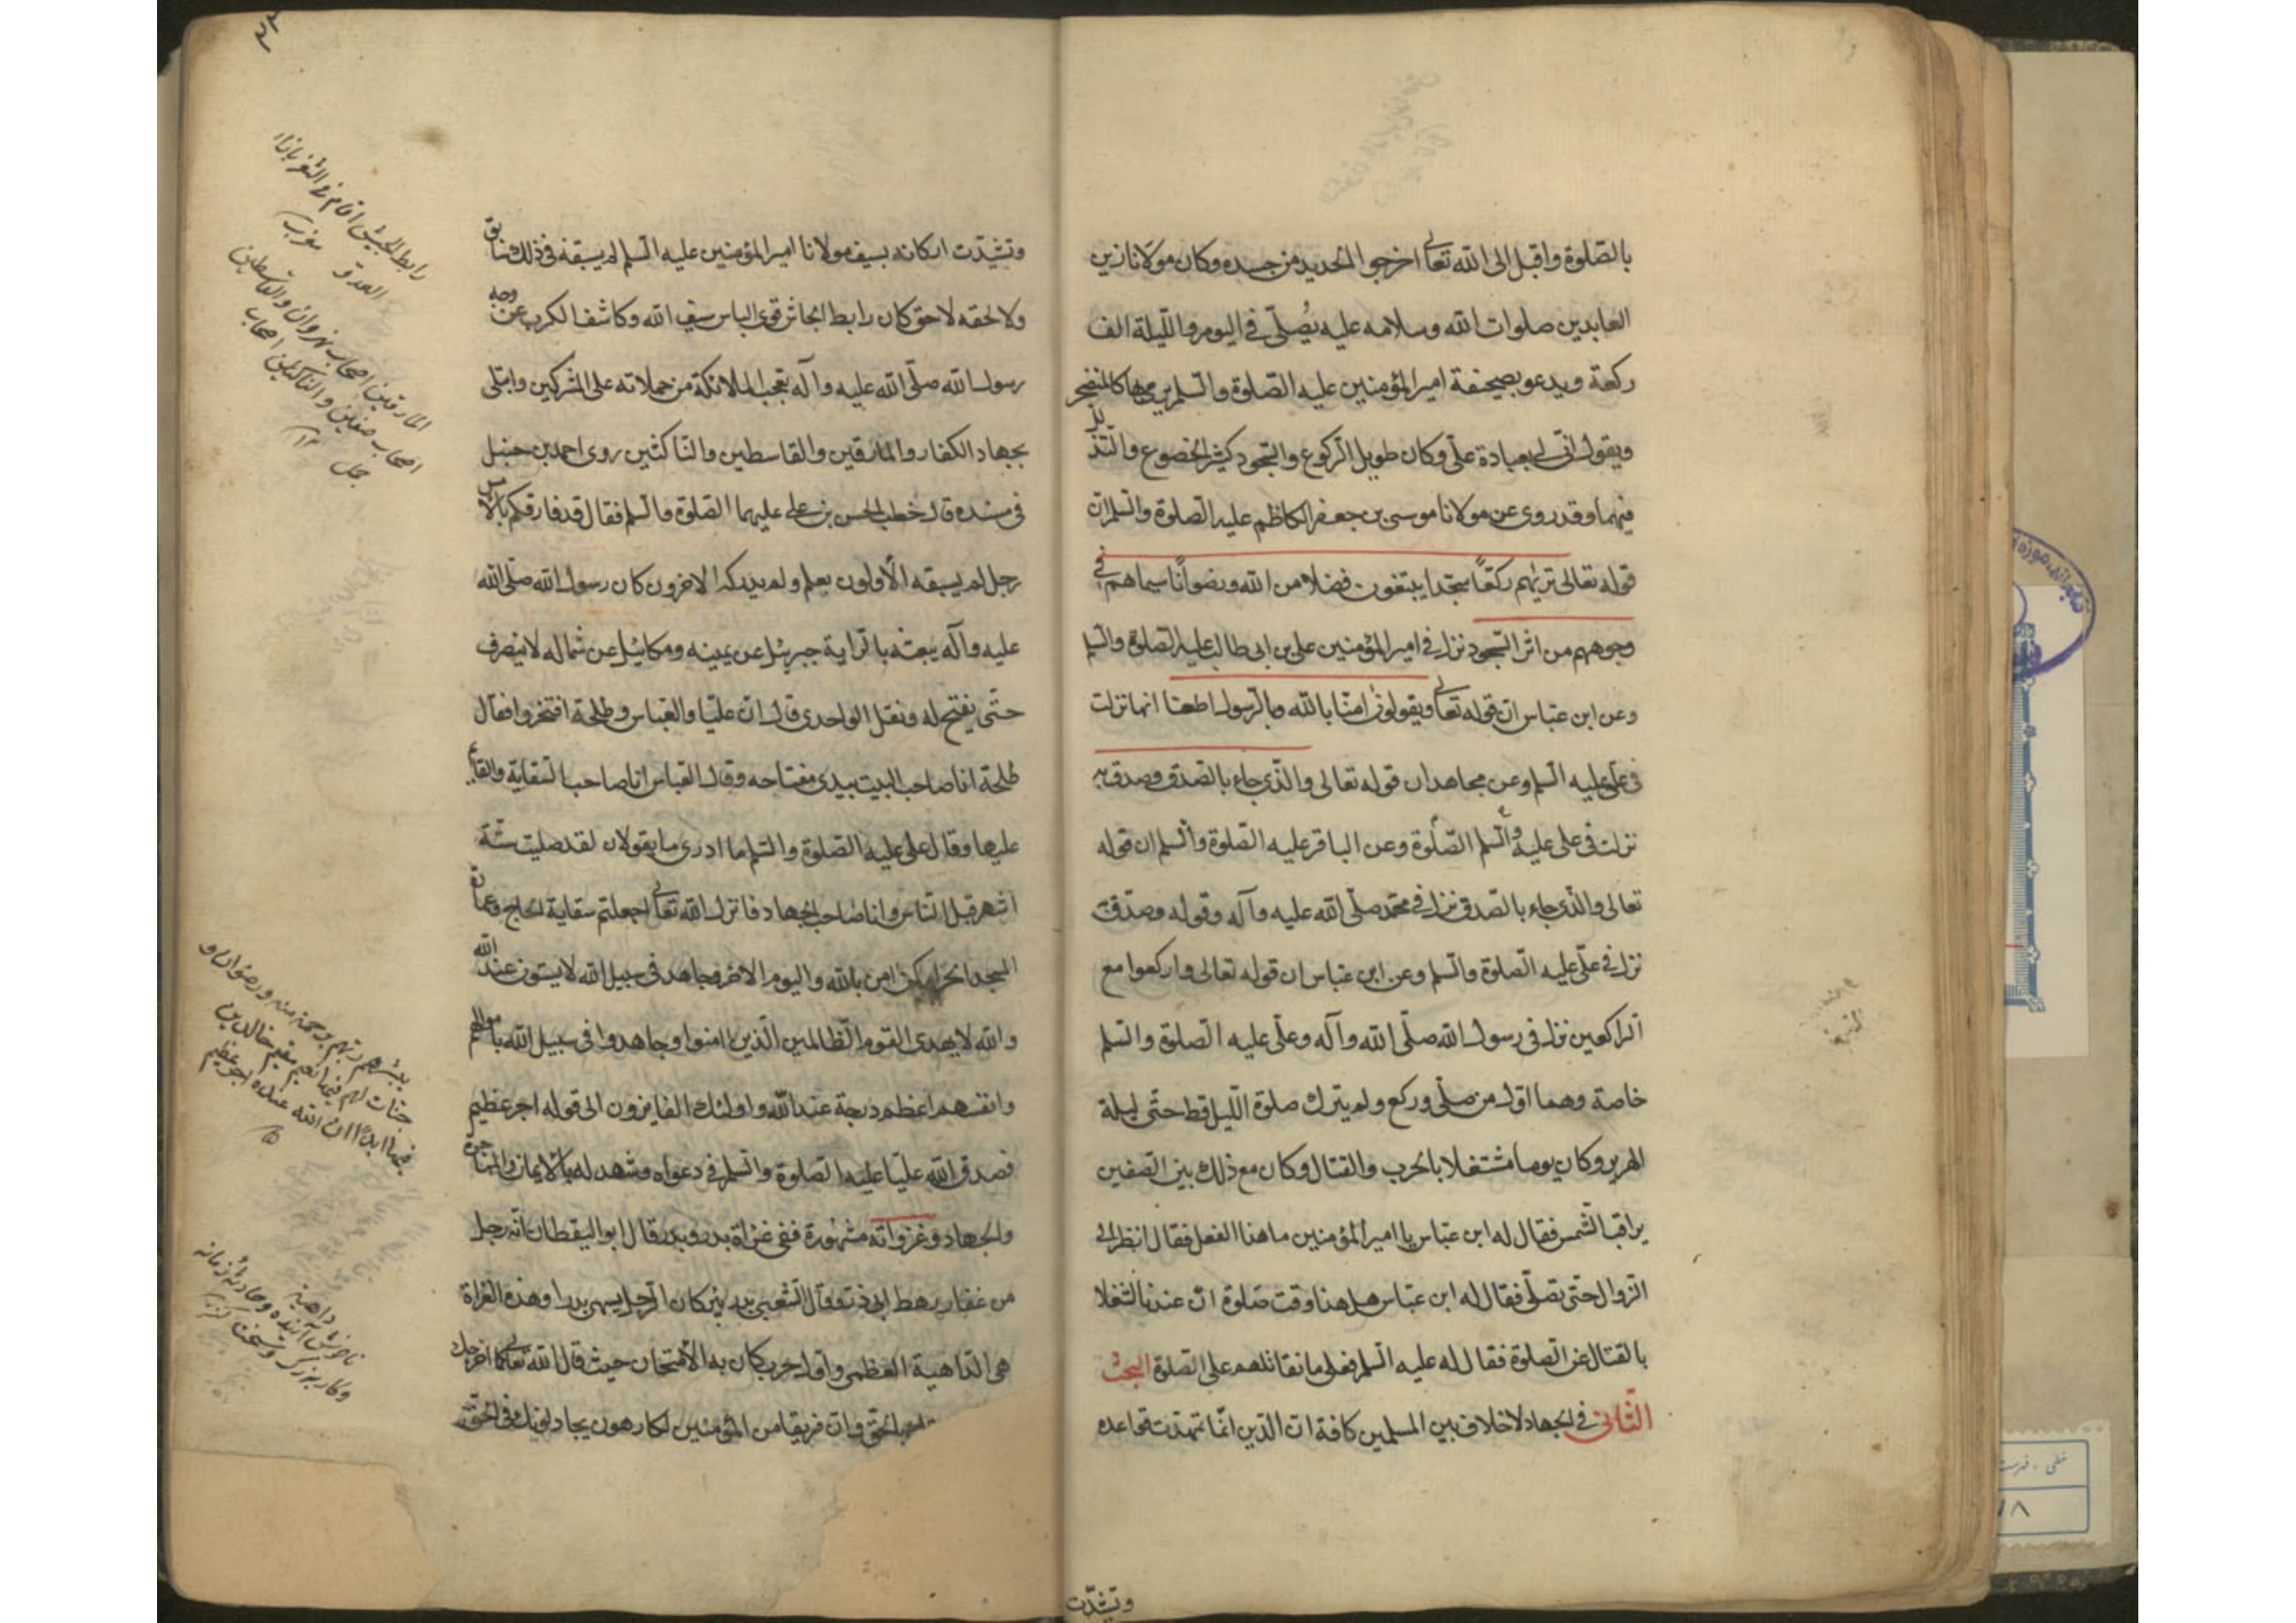 بالصلوة واقبل الى الله تعالى اخرجوا الحديد من جسده وكان مولانا زين
العابدين صلوات الله وسلامه عليه يُصلّى فى اليوم والليلة الف
ركعة ويدعو بصحيفة امير المؤمنين عليه الصلوة والسلم يرمى بها كالمتضجر
ويقول انّى لى بعبادة علّى وكان طويل الركوع والسجود كثير الخضوع والتذلل
فيهما وقد روى عن مولانا موسى بن جعفر الكاظم عليه الصلوة والسلم ان
قوله تعالى تريٰهم ركعًا سجّدا يبتغون فضلا من الله ورضوانًا سيماهم فى
وجوههم من اثر السجود نزل فى امير المؤمنين على بن ابى طالب عليه الصلوة والسلم
وعن ابن عبّاس ان قوله تعالى ويقولون امنّا بالله وبالرسول اطعنا انها نزلت
فى على عليه السلم وعن مجاهد ان قوله تعالى والّذى جاء بالصدق وصدق به
نزلت فى على عليه الصلوة والسلم وعن الباقر عليه الصلوة والسلم ان قوله
تعالى والذى جاء بالصدق نزل فى محمّد صلّى الله عليه وآله وقوله وصدّق به
نزل فى علّى عليه الصلوة والسلم وعن ابن عبّاس ان قوله تعالى واركعوا مع
الراكعين نزل فى رسول الله صلّى الله وآله وعلّى عليه الصلوة والسلم
خاصة وهما اوّل من صلّى وركع ولم يترك صلوة الليل قط حتّى ليلة
الهرير وكان يوما مشتغلا بالحرب والقتال وكان مع ذلك بين الصفين
يراقب الشمس فقال له ابن عبّاس يا امير المؤمنين ما هذا الفعل فقال انظر الى
الزوال حتى نصلّى فقال له ابن عبّاس هل هذا وقت صلوة انّ عندنا لشغلا
بالقتال عن الصلوة فقال له عليه السلم فعلى ما نقاتلهم على الصلوة البحث
الثانى فى الجهاد لا خلاف بين المسلمين كافة ان الدّين انّما تمهدت قواعده
وتشيّدت
وتشيّدت اركانه بسيف مولانا امير المؤمنين عليه السلم لم يسبقه فى ذلك سابق
ولا لحقه لاحق كان رابط الجاش قوى الباس سيف الله وكاشف الكرب عن وجه
رسول الله صلّى الله عليه وآله تعجب الملائكة من حملاته على المشركين وابتلى
بجهاد الكفار والمارقين والقاسطين والناكثين روى احمد بن حنبل
فى مسنده قال خطب الحسن بن على عليهما الصلوة والسلم فقال قد فارقكم بالامس
رجل لم يسبقه الاولون بعلم ولم يدركه الاخرون كان رسول الله صلّى الله
عليه وآله يبعثه بالراية جبرئيل عن يمينه وميكائيل عن شماله لا ينصرف
حتّى يفتح له ونقل الواحدى قال ان عليّا والعباس وطلحة افتخروا فقال
طلحة انا صاحب البيت بيدى مفتاحه وقال العباس انا صاحب السقاية والقائم
عليها وقال على عليه الصلوة والسلم ما ادرى ما يقولان لقد صليت ستّة
اشهر قبل الناس وانا صاحب الجهاد فانزل الله تعالى اجعلتم سقاية الحاج وعمارة
المسجد الحرام كمن امن بالله واليوم الاخر وجاهد فى سبيل الله لا يستون عند الله
والله لا يهدى القوم الظالمين الّذين امنوا وجاهدوا فى سبيل الله باموالهم
وانفسهم اعظم درجة عند الله واولئك الفايزون الى قوله اجر عظيم
فصدق الله عليّا عليه الصلوة والسلم فى دعواه وشهد له بالايمان والمهاجرة
والجهاد وغزواته مشهورة ففى غزاة بدر وبدر قال ابو اليقظان انّه رجل
من غفار رهط ابى ذر وقال الشعبى بدر بئر كان لرجل يسمى بدرا وهذه الغزاة
هى الداهية العظمى واول حرب كان به الامتحان حيث قال الله تعالى كما اخرجك
بالحق وان فريقا من المؤمنين لكارهون يجادلونك فى الحق
رابط الجيش اقام فى الثغر بازاء
العدوّ مغرب
المارقين اصحاب نهروان والقاسطين
اصحاب صفين والناكثين اصحاب
جمل ١٢
يبشرهم ربهم برحمة منه ورضوان و
جنات لهم فيها نعيم مقيم خالدين
فيها ابدا ان الله عنده اجر عظيم
داهية
وكار بزرك وسخت